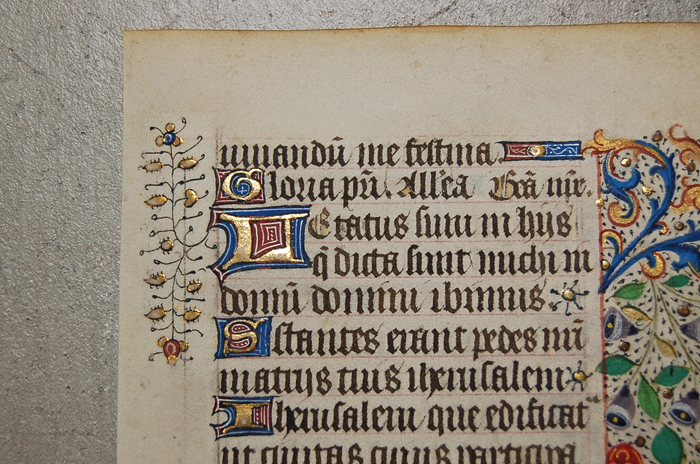 iuuandū me festina
Gloria pr̄i. Allēa
Letatus sum in hijs
q̄ dicta sunt michi in
domū domini ibimus.
Stantes erant pedes nr̄i
in atrijs tuis iherusalem
Iherusalem que edificat
ut ciuitas cuius participa